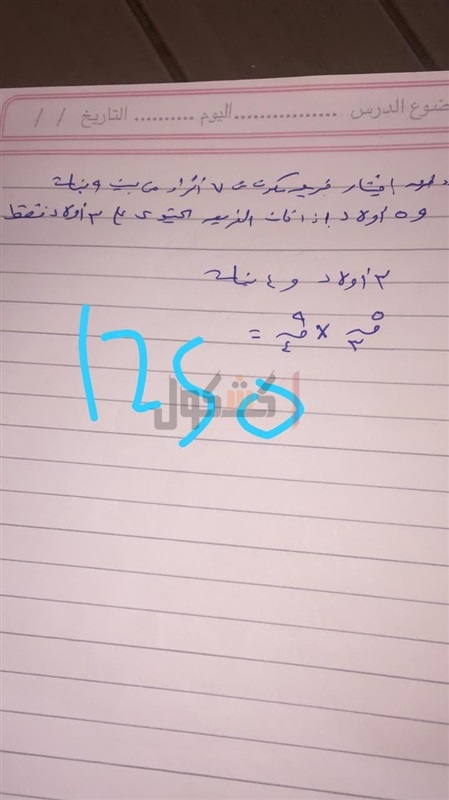 ضوع الدرس ................ اليوم .......... التاريخ / /
اختيار فريق مكون من ٧ أفراد من بين ٩ بنات
و ٥ أولاد إذا كان الفريق يحتوي على ٣ أولاد فقط
٣ أولاد و ٤ بنات
٥ق٣ × ٩ق٤ =
1250
كشكول